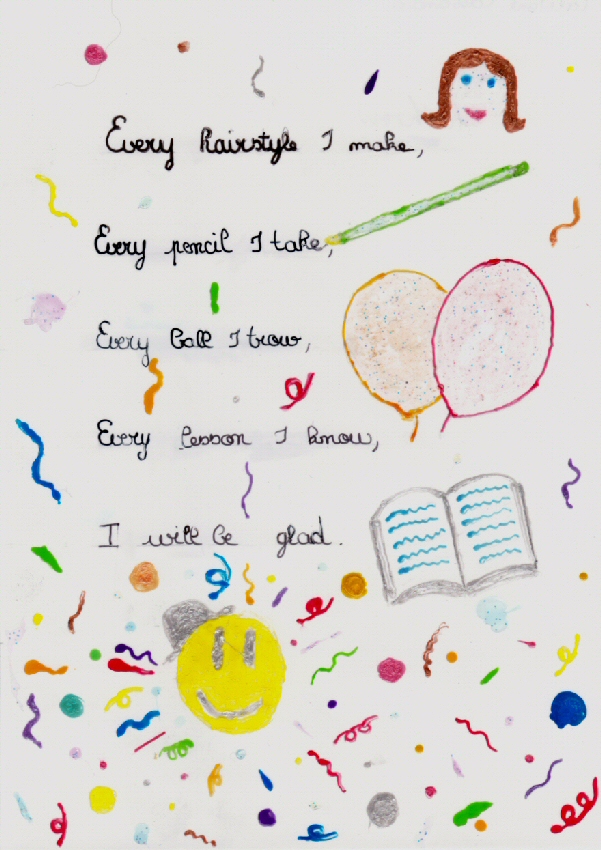 Every hairstyle I make,
Every pencil I take,
Every ball I trow,
Every lesson I know,
I will be glad.